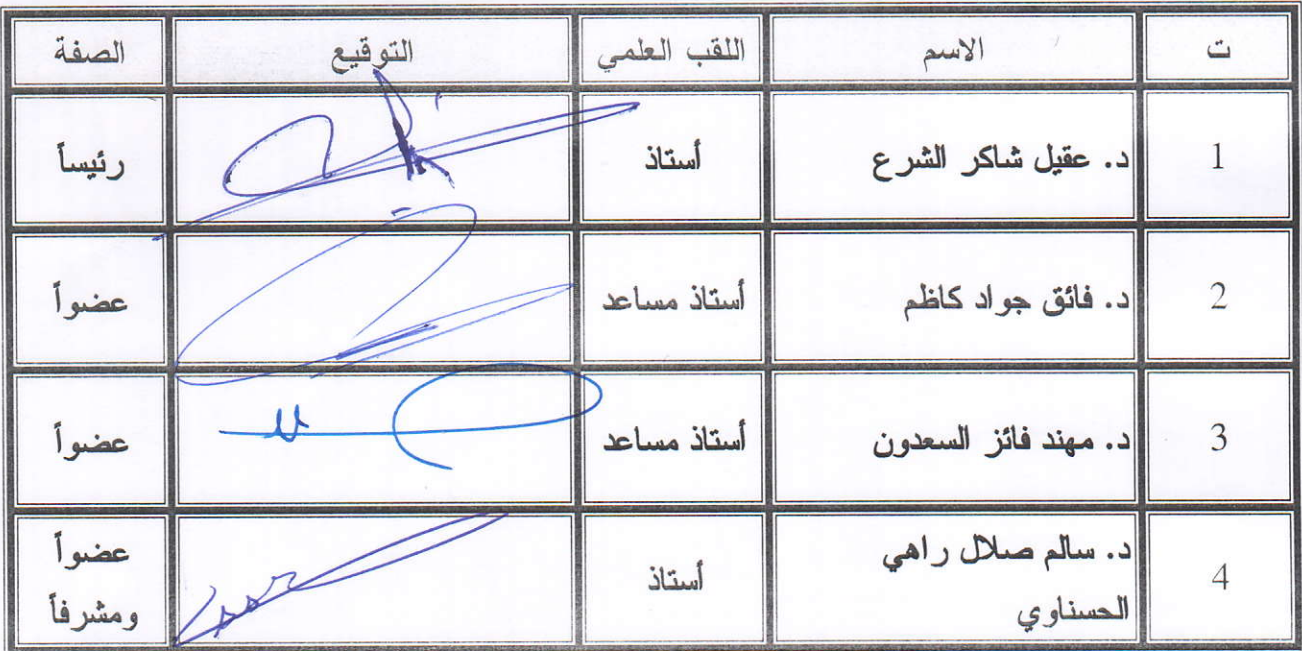 ت الاسم اللقب العلمي التوقيع الصفة
1 د. عقيل شاكر الشرع أستاذ رئيساً
2 د. فائق جواد كاظم أستاذ مساعد عضواً
3 د. مهند فائز السعدون أستاذ مساعد عضواً
4 د. سالم صلال راهي أستاذ عضواً
الحسناوي ومشرفاً